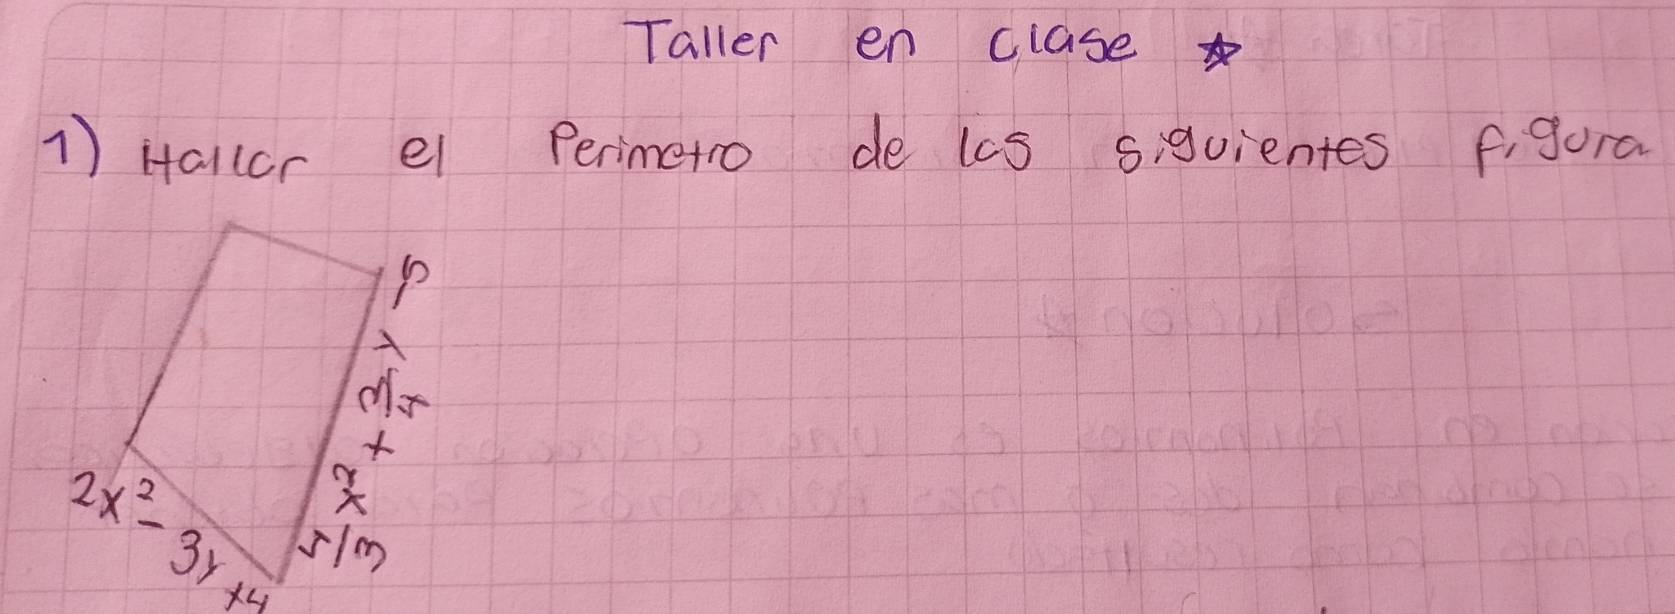 Taller en clase
1) Hallar el Perimetro de las siguientes figura
2x² - 3y + 4
4/3 x² + 3/4 y - 5